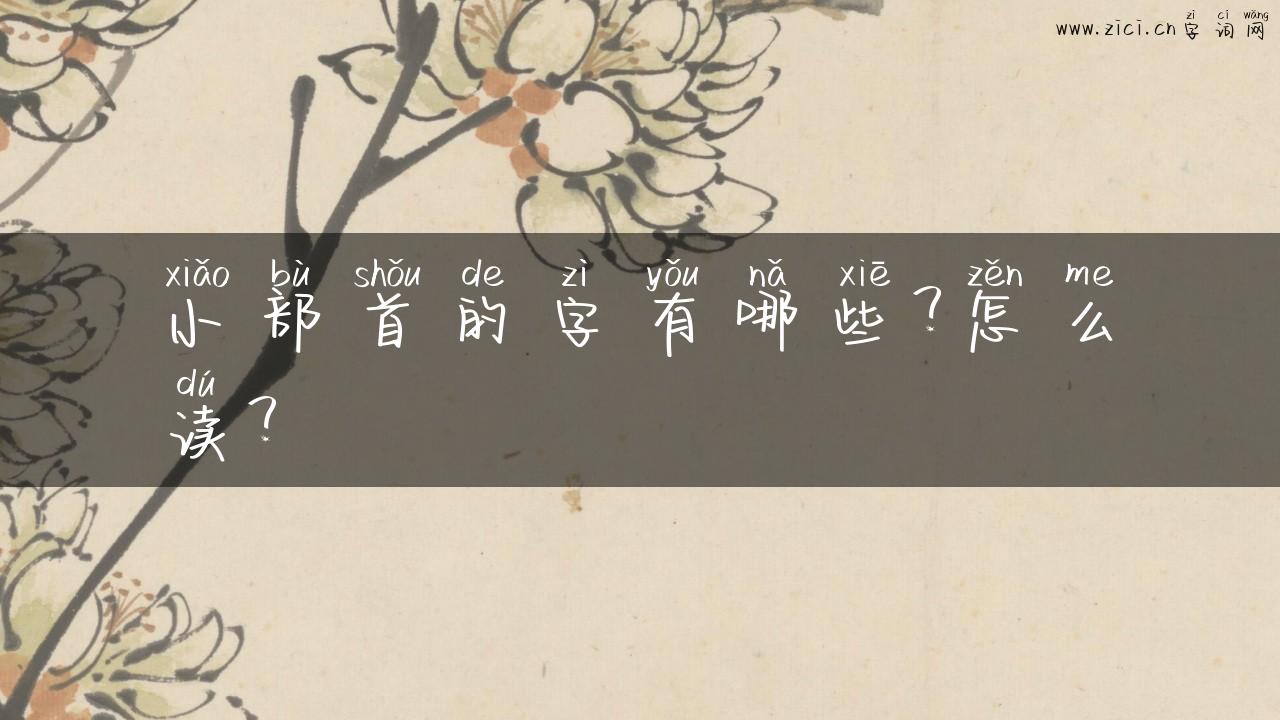 www.zici.cn zì cí wǎng
字词网
xiǎo bù shǒu de zì yǒu nǎ xiē zěn me
小部首的字有哪些？怎么
dú
读？